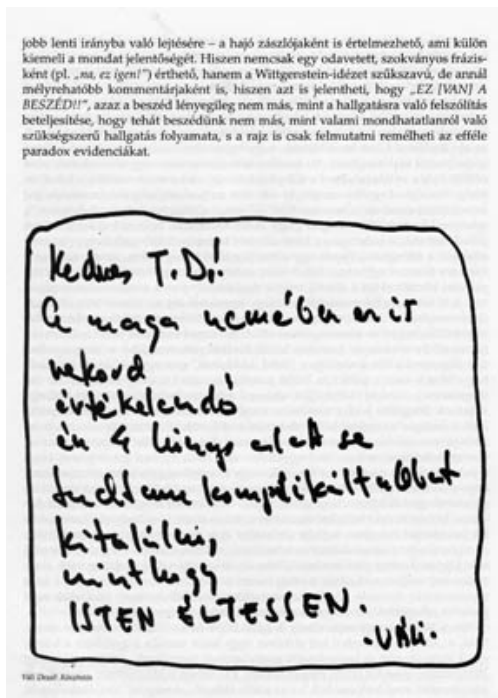 jobb lenti irányba való lejtésére – a hajó zászlójaként is értelmezhető, ami külön
kiemeli a mondat jelentőségét. Hiszen nemcsak egy odavetett, szokványos frázis-
ként (pl. „na, ez igen!”) érthető, hanem a Wittgenstein-idézet szűkszavú, de annál
mélyrehatóbb kommentárjaként is, hiszen azt is jelentheti, hogy „EZ [VAN] A
BESZÉD!!”, azaz a beszéd lényegileg nem más, mint a hallgatásra való felszólítás
beteljesítése, hogy tehát beszédünk nem más, mint valami mondhatatlanról való
szükségszerű hallgatás folyamata, s a rajz is csak felmutatni remélheti az efféle
paradox evidenciákat.
Kedves T.D!
A maga nemében ez is
rekord
értékelendő
én 4 hónap alatt se
tudtam komplikáltabbat
kitalálni,
minthogy
ISTEN ÉLTESSEN.
.VÁLI.
Váli Dezső